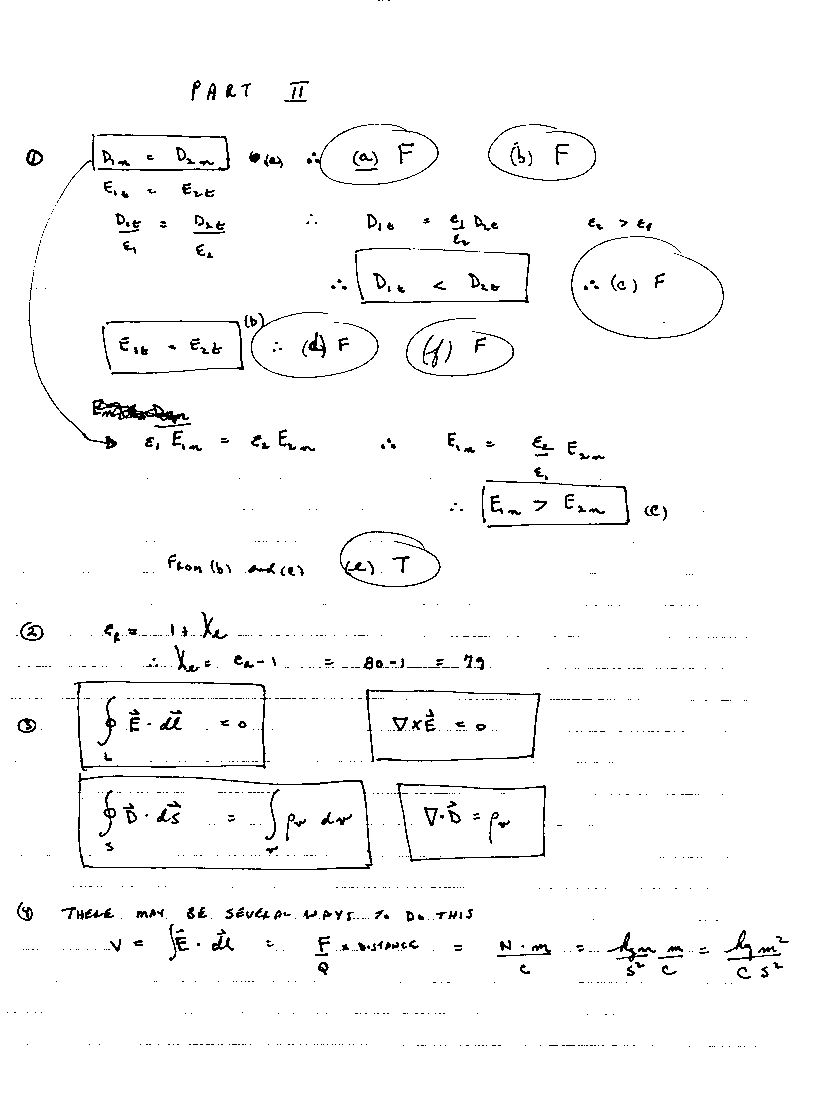 PART II
① D₁ₙ = D₂ₙ (a) ∴ (a) F (b) F
E₁ₜ = E₂ₜ
D₁ₜ/ε₁ = D₂ₜ/ε₂ ∴ D₁ₜ = ε₁/ε₂ D₂ₜ ε₂ > ε₁
∴ D₁ₜ < D₂ₜ ∴ (c) F
E₁ₜ = E₂ₜ (b) ∴ (d) F (f) F
ε₁ E₁ₙ = ε₂ E₂ₙ ∴ E₁ₙ = ε₂/ε₁ E₂ₙ
∴ E₁ₙ > E₂ₙ (c)
From (b) and (c) (e) T
② εᵣ = 1 + χₑ
∴ χₑ = εᵣ - 1 = 80 - 1 = 79
③ ∮_L E⃗ · dl⃗ = 0 ∇×E⃗ = 0
∮_S D⃗ · dS⃗ = ∫_v ρᵥ dv ∇·D⃗ = ρᵥ
④ THERE MAY BE SEVERAL WAYS TO DO THIS
V = ∫E⃗ · dl⃗ = F/Q × DISTANCE = N·m/C = kg m/s² m/C = kg m²/C s²